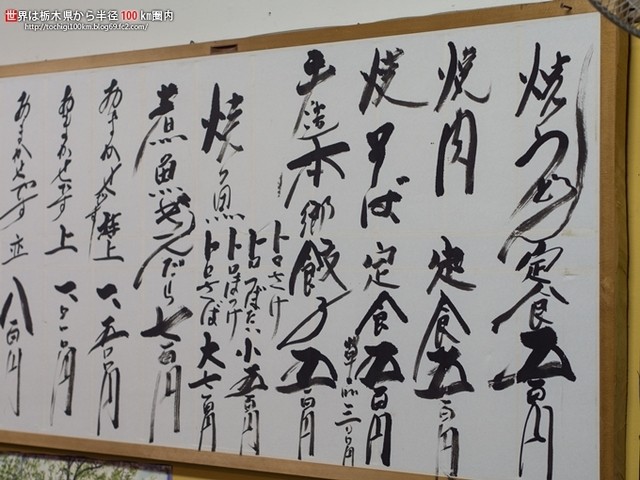 世界は栃木県から半径100km圏内
http://tochigi100km.blog69.fc2.com/
焼うどん定食五百円
焼肉定食五百円
焼そば定食五百円
単品三百円
手造本郷餃子五百円
トロさけ
トロつぼだい小五百円
トロほっけ
焼き魚トロさば大七百円
煮魚銀だら七百円
おまかせです特上一、五百円
おまかせです上一、〇百円
おまかせです並八百円